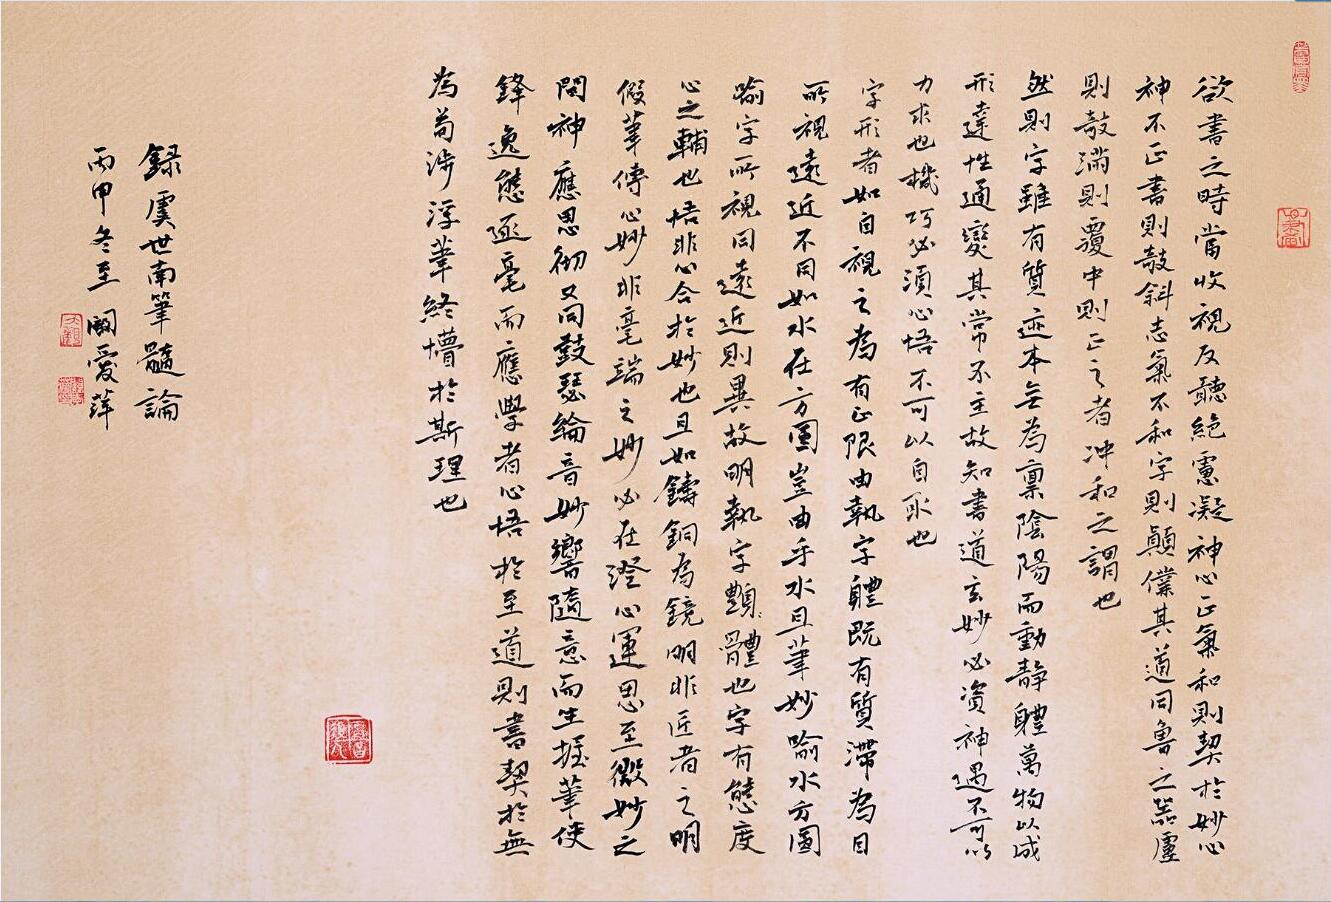 欲書之時當收視反聽絕慮凝神心正氣和則契於妙心
神不正書則敧斜志氣不和字則顛仆其道同魯之器廬
則敧滿則覆中則正正之者冲和之謂也
然則字雖有質迹本無為稟陰陽而動靜體萬物以成
形達性通變其常不主故知書道玄妙必資神遇不可以
力求也機巧必須心悟不可以自取也
字形者如自視之為有正限由執字體既有質滯為目
所視遠近不同如水在方圓豈由乎水且筆妙喻水方圓
喻字所視同遠近則異故明執字體也字有態度
心之輔也悟非心合於妙也且如鑄銅為鏡明非匠者之明
假筆傳心妙非毫端之妙必在澄心運思至微妙之
間神應思徹又同鼓瑟綸音妙響隨意而生握筆使
鋒逸態逐毫而應學者心悟於至道則書契於無
為苟涉浮華終懵於斯理也
錄虞世南筆髓論
丙申冬至 闞愛萍